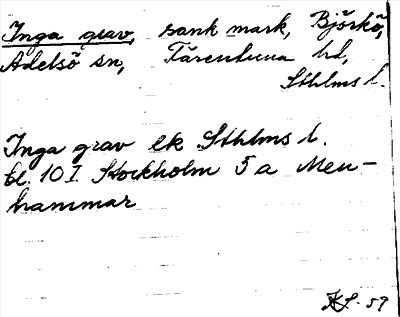 Inga grav, sank mark, Björkö,
Adelsö sn, Färentuna hd,
Sthlms l.
Inga grav ek Sthlms l.
bl. 10 I Stockholm 5 a Men-
hammar
KS-59